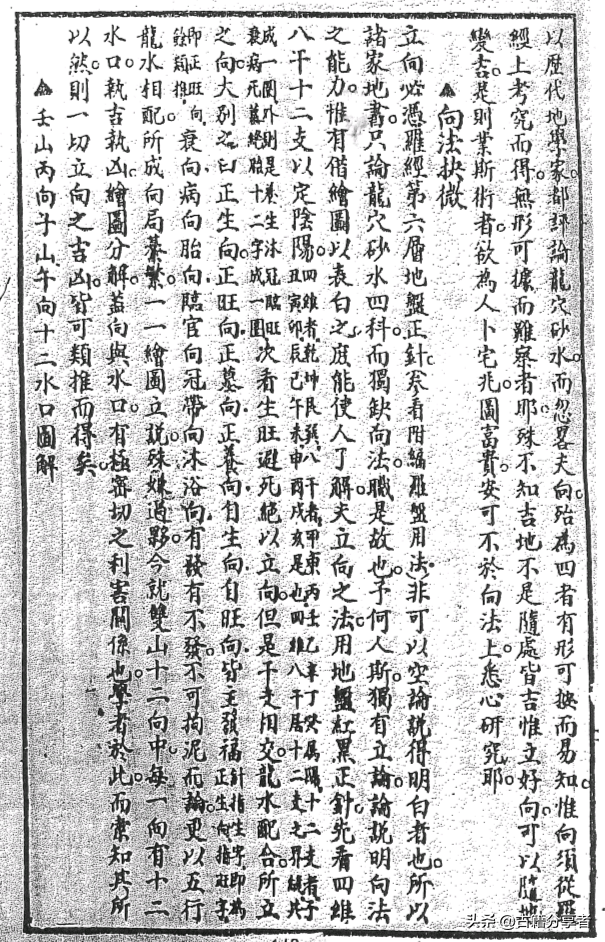 以歷代地學家都評論龍穴砂水而忽畧夫向殆為四者有形可按而易知惟向須從羅
經上考究而得無形可據而難察者耶殊不知吉地不是隨處皆吉惟立好向可以隨地
變吉是則業斯術者欲為人卜宅兆圖富貴安可不於向法上悉心研究耶
▲向法抉微
立向必憑羅經第六層地盤正針參看附編羅盤用法非可以空論說得明白者也所以
諸家地書只論龍穴砂水四科而獨缺向法職是故也予何人斯獨有立論論說明向法
之能力惟有借繪圖以表白之庶能使人了解夫立向之法用地盤紅黑正針先看四維
八干十二支以定陰陽四維者乾坤艮巽八干者甲庚丙壬乙辛丁癸屬陽十二支者子丑寅卯辰巳午未申酉戌亥是也四維八干居十二支之界縫共
成一圖外則是養生沐冠臨旺衰病死墓絕胎十二字成一圖次看生旺避死絕以立向但是干支相交龍水配合所立
之向大別之曰正生向正旺向正墓向正養向自生向自旺向皆主發福正生向指旺字即正旺向餘類推
衰向病向胎向臨官向冠帶向沐浴向有發有不發不可拘泥而論更以五行
龍水相配所成向局綦繁一一繪圖立說殊嫌過夥今就雙山十二向中每一向有十二
水口孰吉孰凶繪圖分解蓋向與水口有極密切之利害關係也學者於此而索知其所
以然則一切立向之吉凶皆可類推而得矣
▲壬山丙向子山午向十二水口圖解
头条@古籍分享者